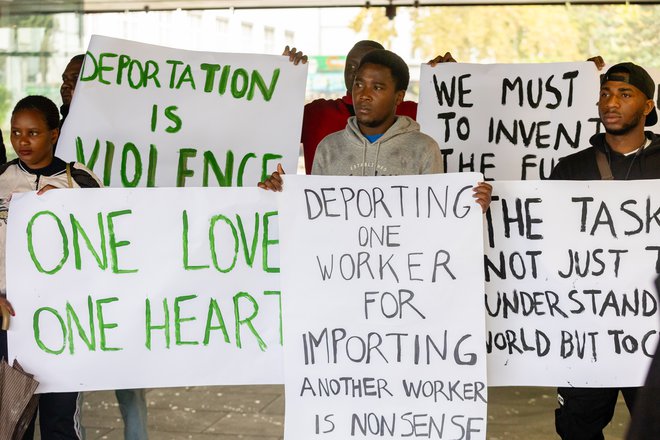 DEPORTATION
IS
VIOLENCE
WE MUST
TO INVENT
THE
ONE LOVE
ONE HEART
DEPORTING
ONE
WORKER
FOR
IMPORTING
ANOTHER WORKER
IS NONSENSE
THE TASK
NOT JUST
UNDERSTAND
WORLD BUT TO